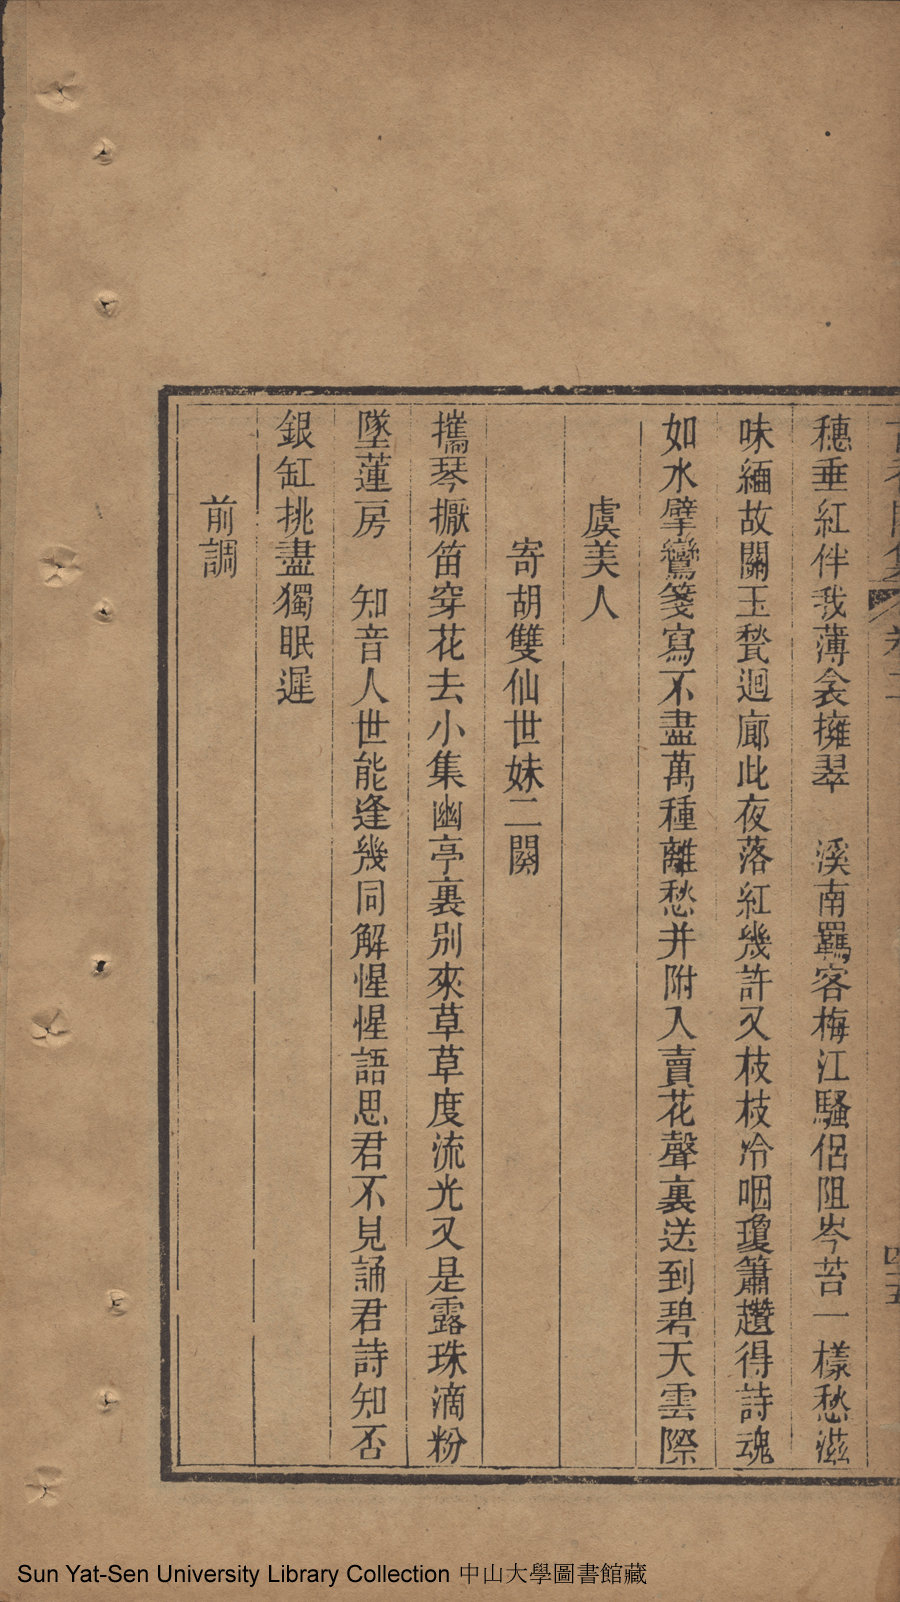 穗垂紅伴我薄衾擁翠　溪南羈客梅江騷侶阻岑苔一樣愁滋
味緬故關玉甃迴廊此夜落紅幾許又枝枝冷咽瓊簫趲得詩魂
如水擘鸞箋寫不盡萬種離愁并附入賣花聲裏送到碧天雲際
虞美人
寄胡雙仙世妹二闋
攜琴擫笛穿花去小集幽亭裏別來草草度流光又是露珠滴粉
墜蓮房　知音人世能逢幾同解惺惺語思君不見誦君詩知否
銀缸挑盡獨眠遲
前調
Sun Yat-Sen University Library Collection 中山大學圖書館藏